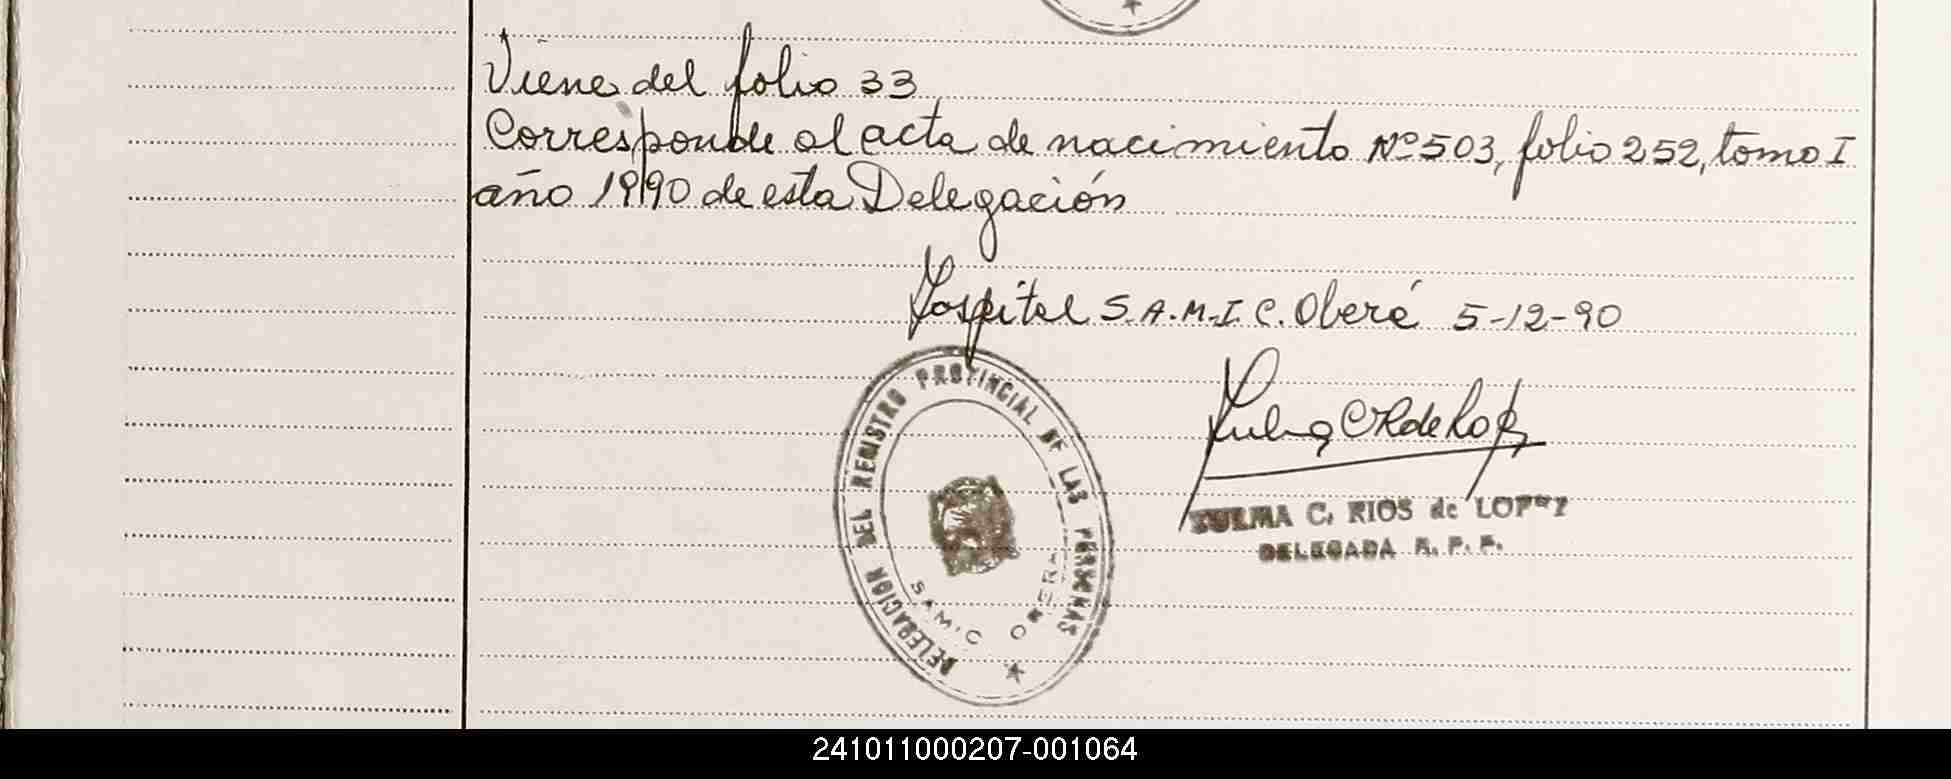 Viene del folio 33
Corresponde al acta de nacimiento Nº 503, folio 252, tomo I
año 1990 de esta Delegación
Hospital S.A.M.I.C. Oberá 5-12-90
DELEGACION DEL REGISTRO PROVINCIAL DE LAS PERSONAS
SAMIC OBERA
ZULMA C. RIOS de LOPEZ
DELEGADA R. P. P.
241011000207-001064